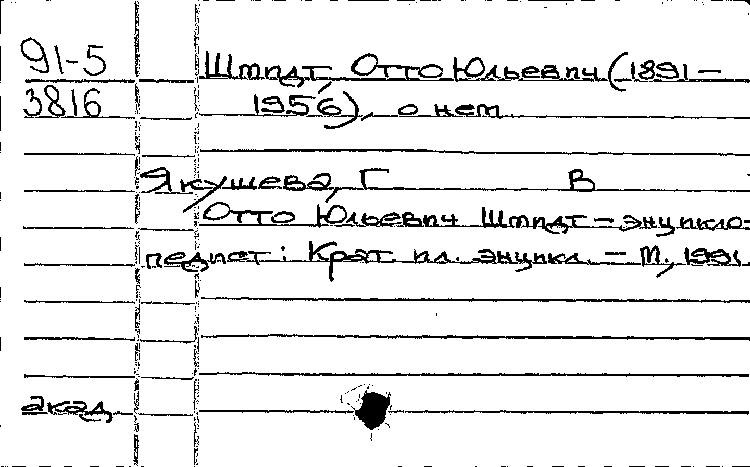 91-5 Шмидт, Отто Юльевич (1891 –
3816 1956), о нем
Якушева, Г В
Отто Юльевич Шмидт – энцикло-
педист: Крат. ил. энцикл. – М., 1991
акад.